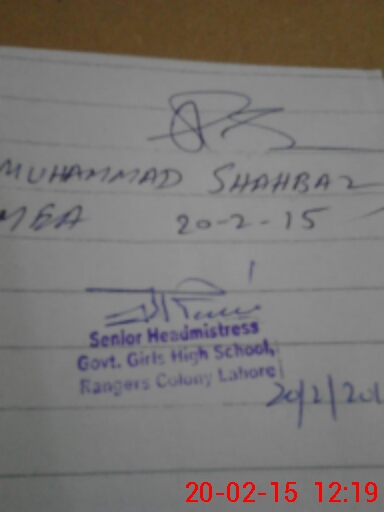 MUHAMMAD SHAHBAZ
MEA 20-2-15
Senior Headmistress
Govt. Girls High School,
Rangers Colony Lahore
20/2/201
20-02-15 12:19